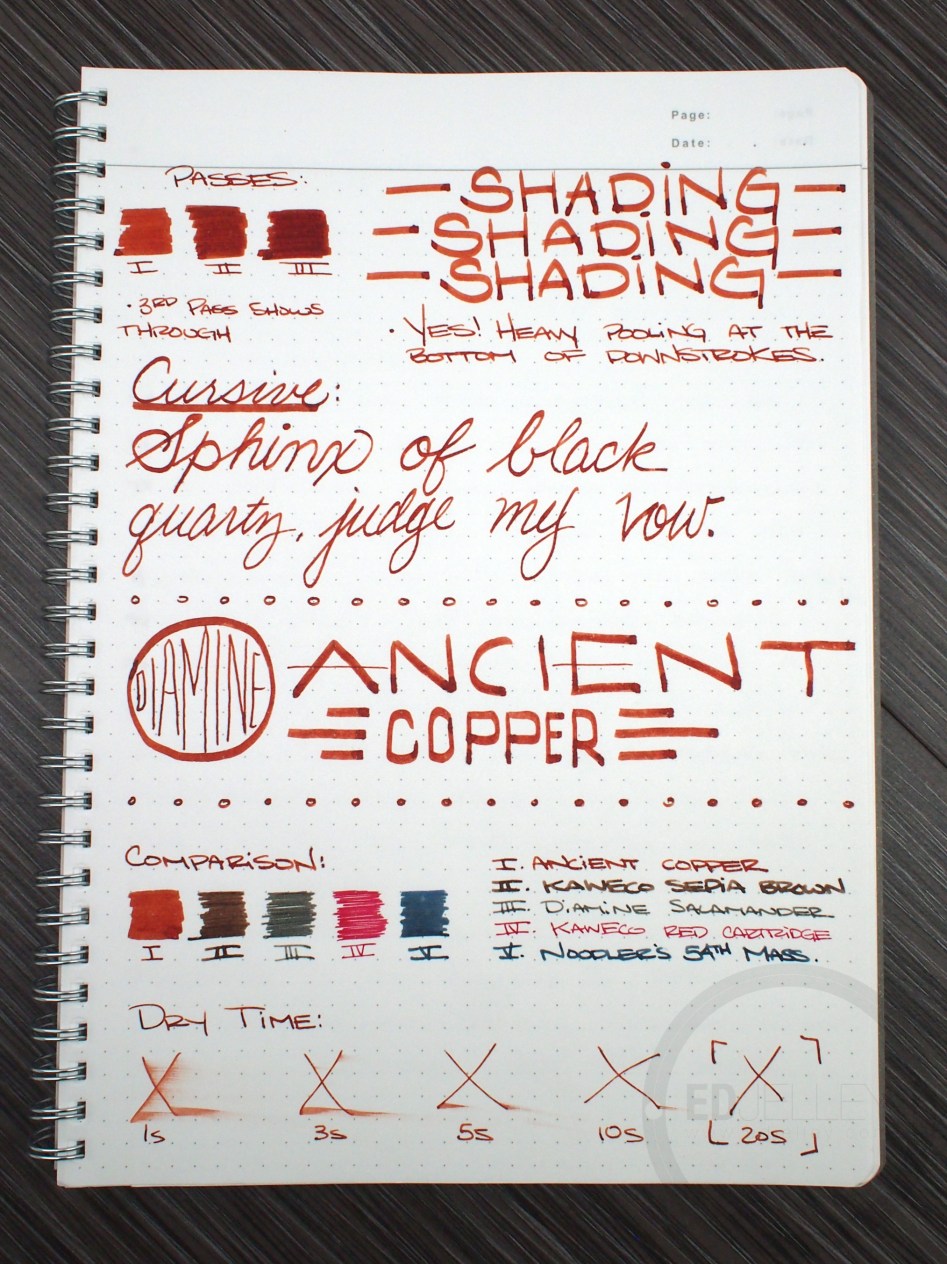 Page:
Date:
PASSES:
I II III
· 3RD PASS SHOWS
THROUGH
SHADiNG
SHADiNG
SHADiNG
· YES! HEAVY POOLING AT THE
BOTTOM OF DOWNSTROKES.
Cursive:
Sphinx of black
quartz, judge my vow.
DIAMINE
ANCIENT
COPPER
COMPARiSON:
I II III IV V
I. ANCIENT COPPER
II. KAWECO SEPIA BROWN
III. DiAMINE SALAMANDER
IV. KAWECO RED CARTRIDGE
V. NOODLER'S 54TH MASS.
DRY TIME:
1s 3s 5s 10s 20s
ED JELLEY